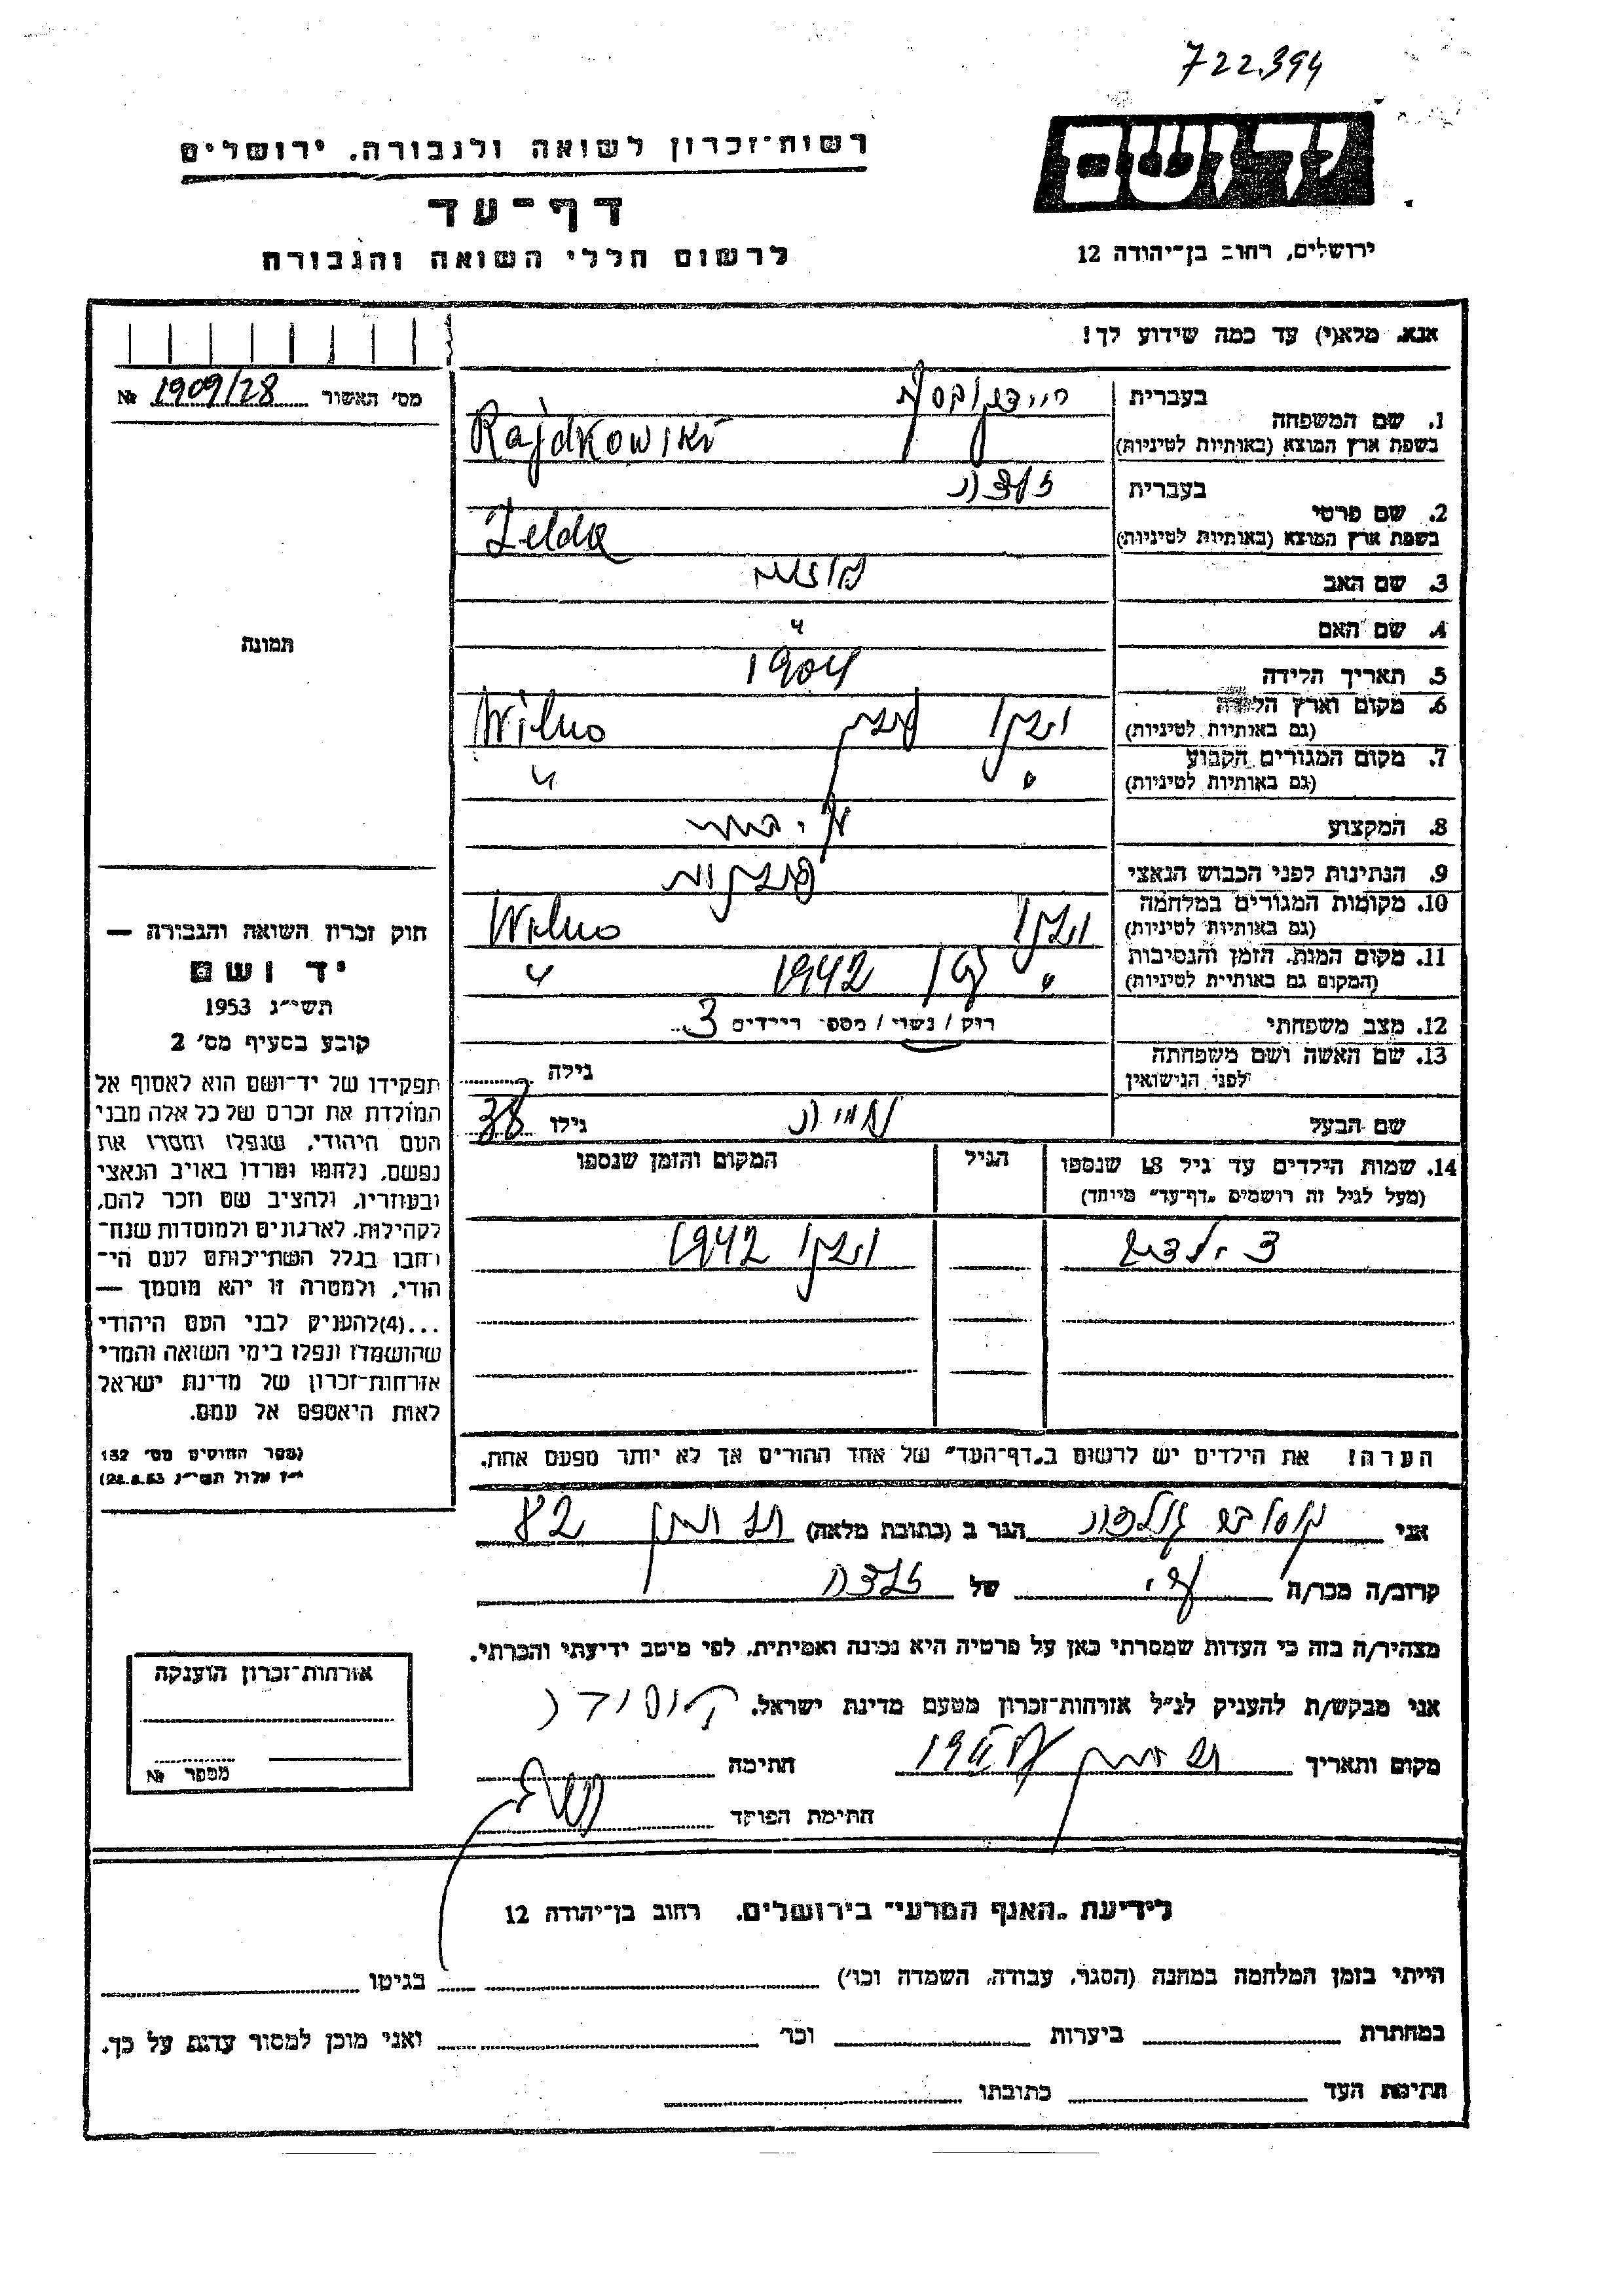 722.394
יד ושם
ירושלים, רחוב בן־יהודה 12
רשות־זכרון לשואה ולגבורה. ירושלים
דף־עד
לרשום חללי השואה והגבורה
אנא. מלא(י) עד כמה שידוע לך!
מס' האשור 1909/28 №
תמונה
1. שם המשפחה
בעברית
בשפת ארץ המוצא (באותיות לטיניות) Rajdkowski
2. שם פרטי
בעברית
בשפת ארץ המוצא (באותיות לטיניות) Zelda
3. שם האב
4. שם האם "
5. תאריך הלידה 1904
6. מקום וארץ הלידה
(גם באותיות לטיניות) וילנה פולין Wilno
7. מקום המגורים הקבוע
(גם באותיות לטיניות) " "
8. המקצוע
9. הנתינות לפני הכבוש הנאצי
10. מקומות המגורים במלחמה
(גם באותיות לטיניות) Wilno
11. מקום המות. הזמן והנסיבות
(המקום גם באותיות לטיניות) " 1942 "
12. מצב משפחתי רווק / נשוי / מספר הילדים 3
13. שם האשה ושם משפחתה
לפני הנישואין גילה
שם הבעל גילו 38
14. שמות הילדים עד גיל 18 שנספו
(מעל לגיל זה רושמים „דף־עד" מיוחד)
הגיל
המקום והזמן שנספו
3 ילדים 1942
הערה! את הילדים יש לרשום ב„דף־העד" של אחד ההורים אך לא יותר מפעם אחת.
חוק זכרון השואה והגבורה —
יד ושם
תשי״ג 1953
קובע בסעיף מס' 2
תפקידו של יד־ושם הוא לאסוף אל
המולדת את זכרם של כל אלה מבני
העם היהודי, שנפלו ומסרו את
נפשם, נלחמו ומרדו באויב הנאצי
ובעוזריו, ולהציב שם וזכר להם,
לקהילות, לארגונים ולמוסדות שנח־
רחבו בגלל השתייכותם לעם הי־
הודי, ולמטרה זו יהא מוסמך —
...(4)להעניק לבני העם היהודי
שהושמדו ונפלו בימי השואה והמרי
אזרחות־זכרון של מדינת ישראל
לאות היאספם אל עמם.
(ספר החוקים מס' 132
י״ז אלול תשי״ג 28.8.53)
אני הגר ב (כתובת מלאה) 82
קרוב/ה מכר/ה של זלדה
מצהיר/ה בזה כי העדות שמסרתי כאן על פרטיה היא נכונה ואמיתית. לפי מיטב ידיעתי והכרתי.
אני מבקש/ת להעניק לנ״ל אזרחות־זכרון מטעם מדינת ישראל.
מקום ותאריך חתימה
חתימת הפוקד
אזרחות־זכרון הוענקה
מספר №
לידיעת „האגף המדעי" בירושלים. רחוב בן־יהודה 12
הייתי בזמן המלחמה במחנה (הסגר, עבודה, השמדה וכו') בגיטו
במחתרת ביערות וכו' ואני מוכן למסור עדות על כך.
חתימת העד כתובתו